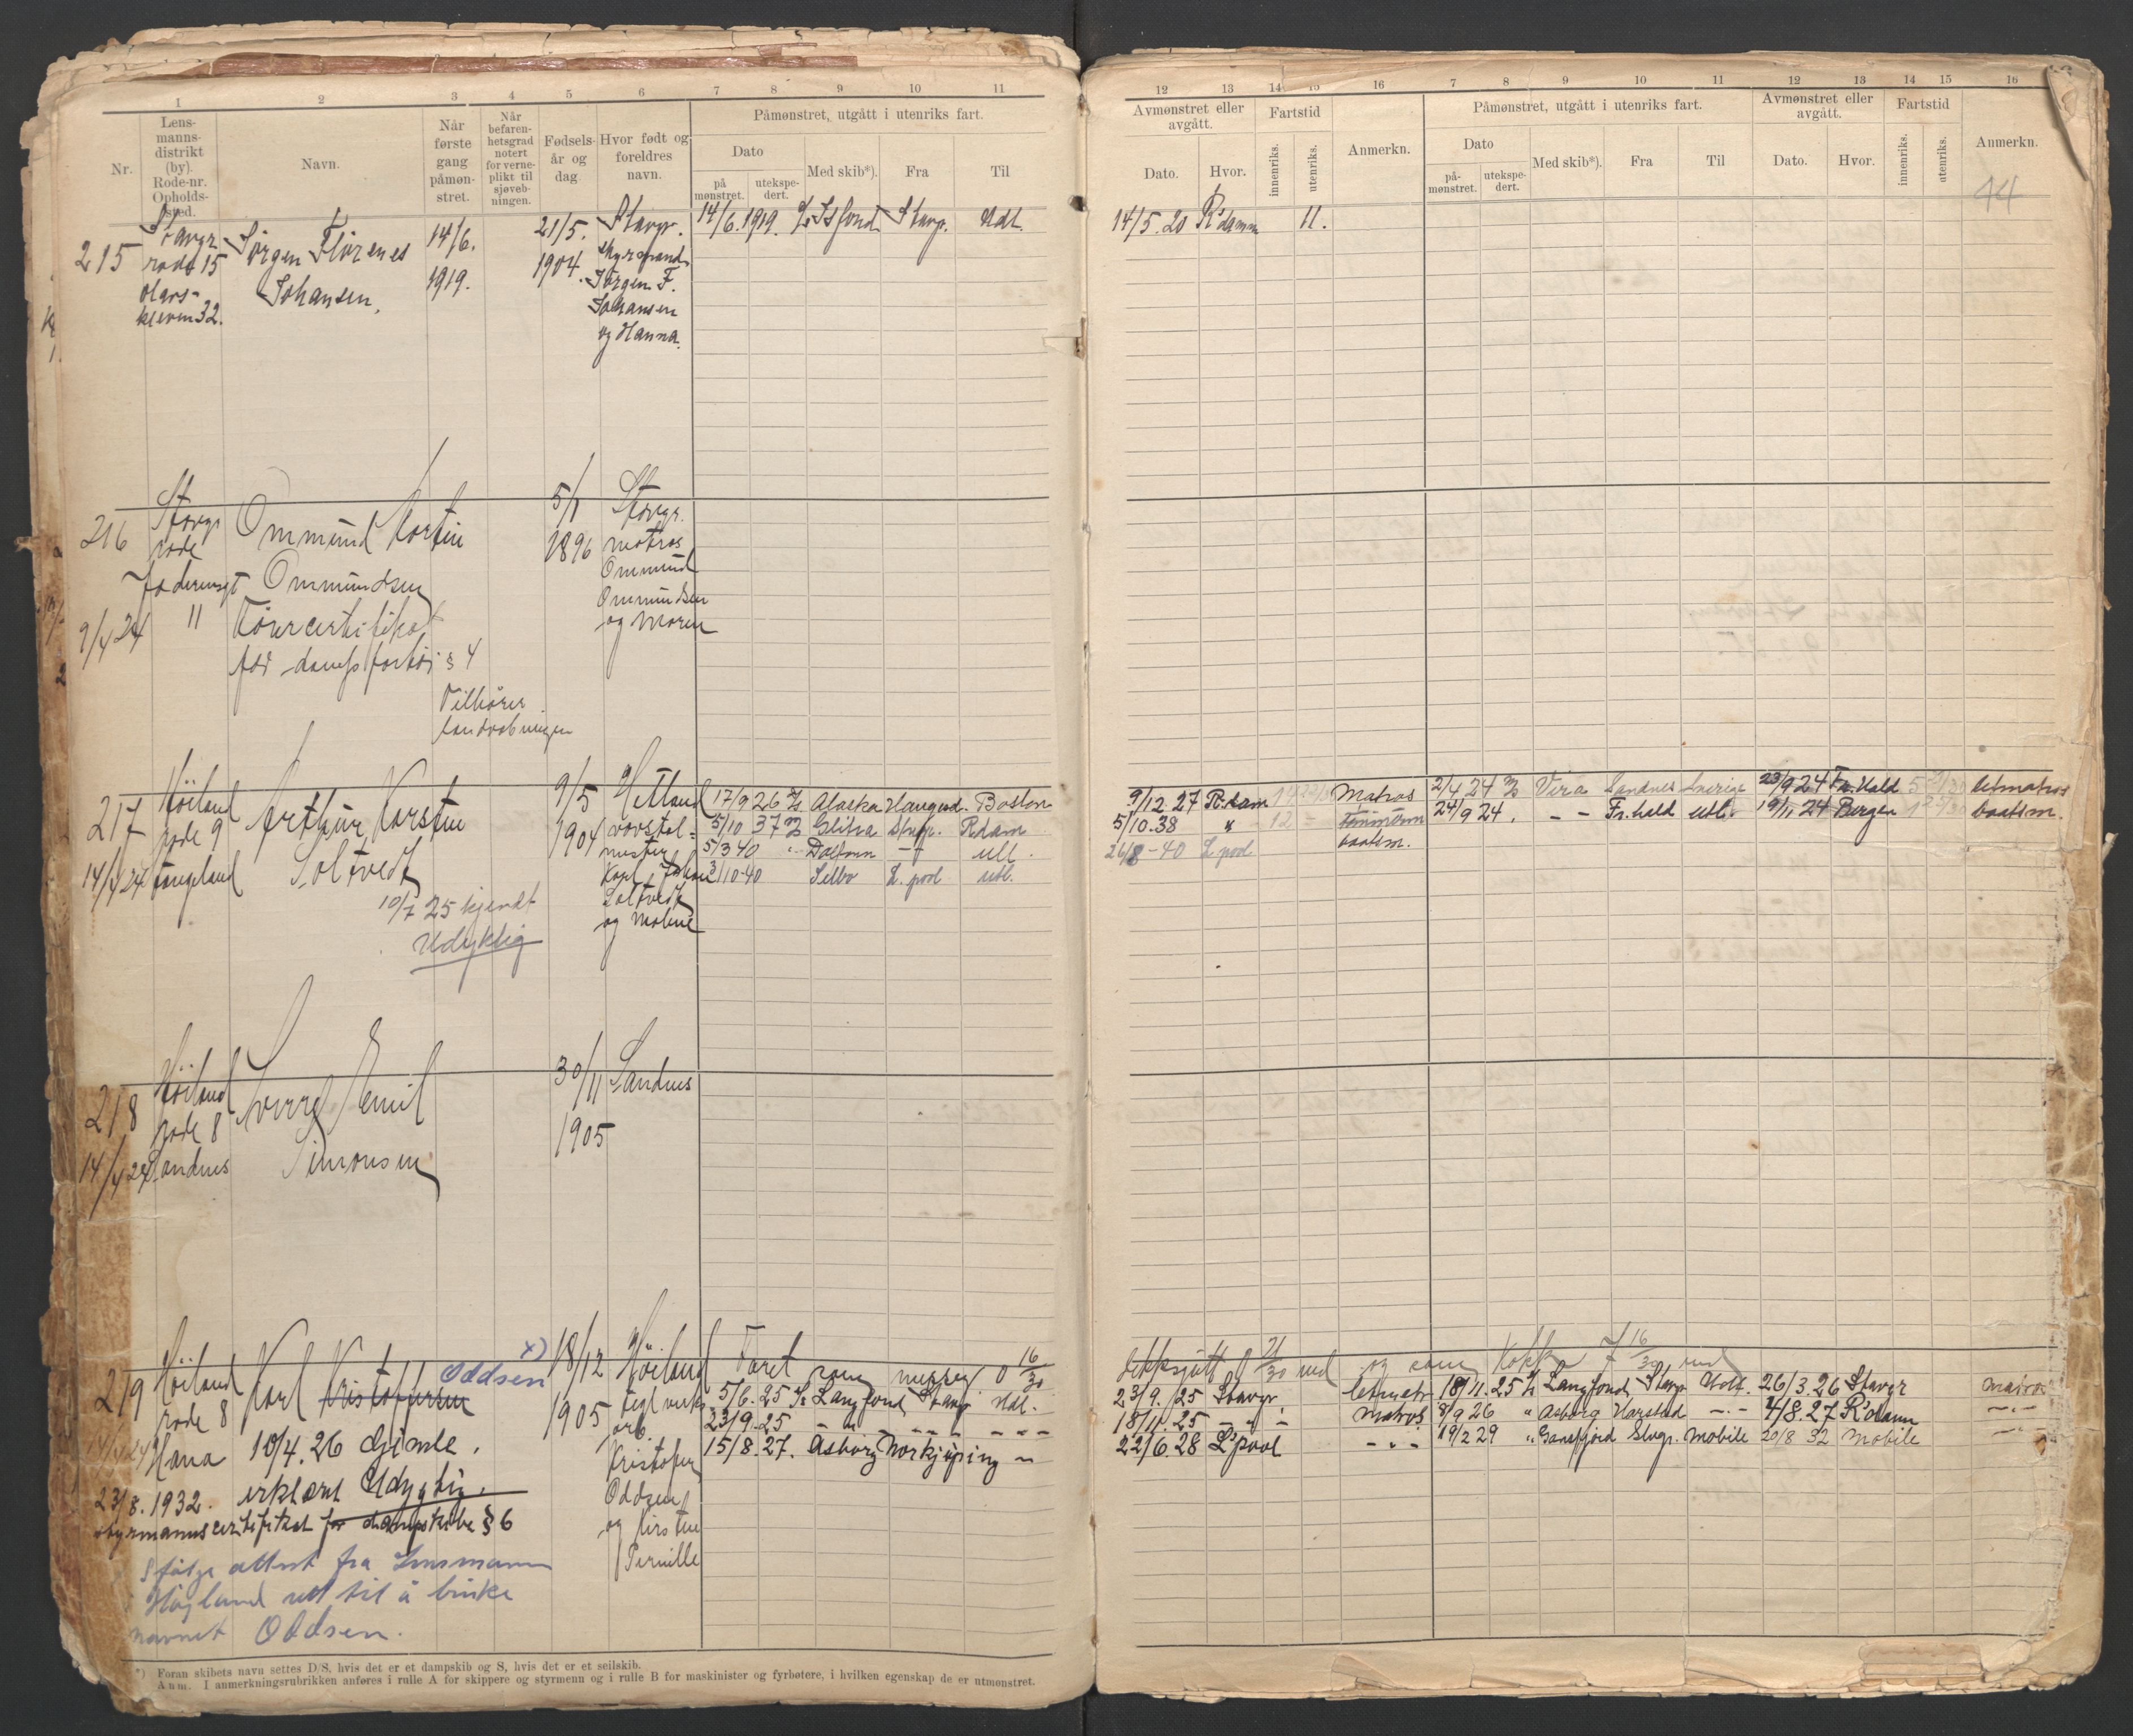 1 2 3 4 5 6 7 8 9 10 11
Nr.
Lens-
manns-
distrikt
(by).
Rode-nr.
Opholds-
sted.
Navn.
Når
første
gang
påmøn-
stret.
Når
befaren-
hetsgrad
notert
for verne-
plikt til
sjøveb-
ningen.
Fødsels-
år og
dag.
Hvor født og
foreldres
navn.
Påmønstret, utgått i utenriks fart.
Dato
på
mønstret.
utekspe-
dert.
Med skib*).
Fra
Til
215
Stavgr.
rode 15
kleven 32.
Jörgen Florenes
Johansen,
14/6.
1919.
21/5.
1904.
Stavgr.
styrmand
Jörgen F.
Johansen
og Hanna.
14/6.1919. Isfond Stavg. Udl.
216
Stavgr
rode
11
9/4 24
Ommund Martin
Ommundsen
för dampfartöi § 4
Tilhörer
landvæbningen
5/1
1896
Stavgr.
matros
Ommund
Ommundsen
og Maren
217
Höiland
rode 9
14/4 24
Arthur Karsten
Soltvedt
10/7 25 kjendt
Udyktig
9/5
1904
Hetland
mester
Karl Johan
Soltvedt
og Maline
17/9 26 Alaska Haugesd. Boston
5/10 37 Glitra Stvgr. Rdam
5/3 40 utl.
3/10-40 Selbo L. pool utl.
218
Höiland
rode 8
14/4 24 Sandnes
Sverre Emil
Simonsen
30/11
1905
Sandnes
219
Höiland
rode 8
14/4 24 Hana
Karl Kristofersen Oddsen x)
10/4.26 Gimle.
erklært Udygtig.
23/8.1932.
styrmannscertifikat for dampskibe § 6
Ifølge attest fra Lensmann
Høyland ret til å bruke
navnet Oddsen.
18/12
1905
Höiland
teglverks-
arb.
Kristofer
Oddsen
og Kirsten
Pernille
Faret som messeg. 0 16/30
5/6.25 Langfond Stavgr Udl.
23/9.25 – " – – " – – " –
15/8.27. Asborg Norkjöping "
*) Foran skibets navn settes D/S, hvis det er et dampskib og S, hvis det er et seilskib.
Anm. I anmerkningsrubrikken anføres i rulle A for skippere og styrmenn og i rulle B for maskinister og fyrbøtere, i hvilken egenskap de er utmønstret.
12 13 14 15 16 7 8 9 10 11 12 13 14 15 16
Avmønstret eller
avgått.
Dato.
Hvor.
Fartstid
innenriks.
utenriks.
Anmerkn.
Påmønstret, utgått i utenriks fart.
Dato
på-
mønstret.
utekspe-
dert.
Med skib*).
Fra
Til
Avmønstret eller
avgått.
Dato.
Hvor.
Fartstid
innenriks.
utenriks.
Anmerkn.
44
14/5.20 R'damm 11.
9/12.27 R.dam Matros 2/4 24 Vira Sandnes Sverige 23/9 24 Fr.hald letmatros
5/10.38 " 12 – Tømmerm 24/9 24. – – Fr.hald utl. 19/11.24 Bergen baatsm.
26/8-40 L. pool baatsm.
dekksgutt 0 21/30 md og som Kokk 7 16/30 md
23/9./25 Stavgr. letmatr. 18/11.25 Langfond, Stavgr Utl. 26/3.26 Stavgr matros
18/11.25 – " – matros 8/9 26 " Asborg Harstad –.– 4/8.27 R'damm –.–
22/6.28 L'pool –.– 19/2 29 " Gansfjord Stvgr. Mobile 20/8 32 Mobile –.–